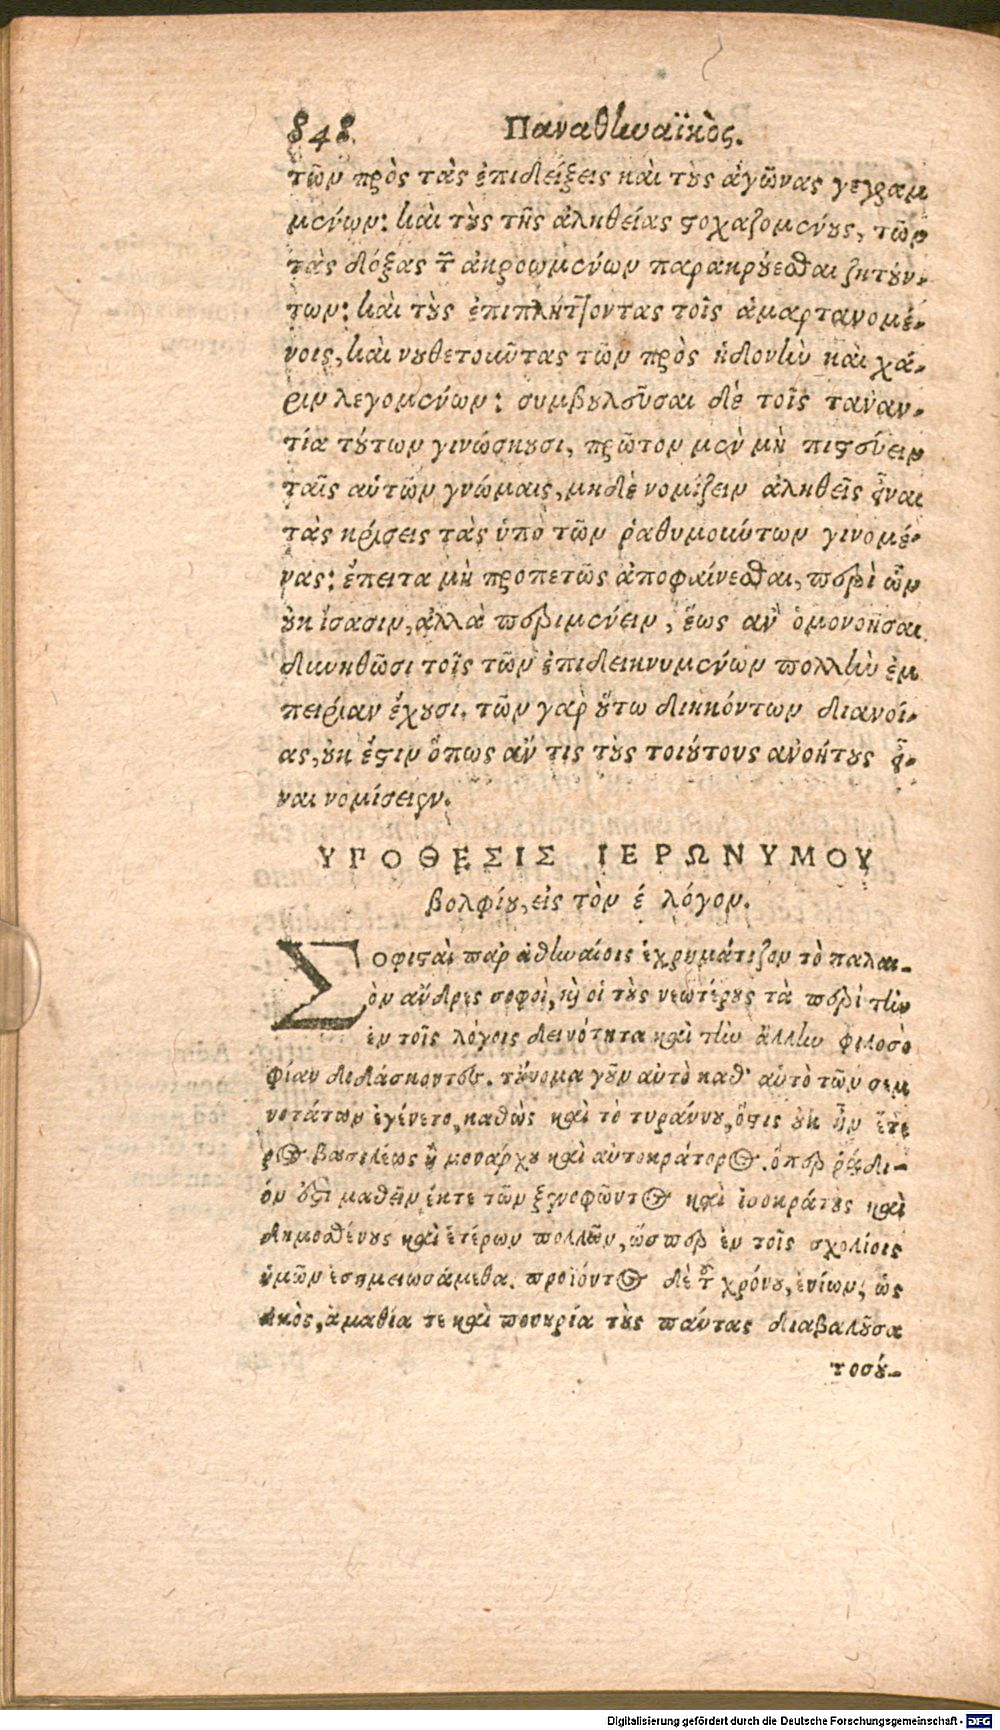 848 Παναθηναϊκὸς.
τῶν πρὸς τὰς ἐπιδείξεις καὶ τοὺς ἀγῶνας γεγραμ
μένων: καὶ τοὺς τῆς ἀληθείας στοχαζομένους, τῶν
τὰς δόξας τῶν ἀκροωμένων παρακρούεσθαι ζητούν-
των: καὶ τοὺς ἐπιπλήττοντας τοῖς ἁμαρτανομέ-
νοις, καὶ νουθετοῦντας τῶν πρὸς ἡδονὴν καὶ χά-
ριν λεγομένων: συμβουλεῦσαι δὲ τοῖς τἀναν-
τία τούτων γινώσκουσι, πρῶτον μὲν μὴ πιστεύειν
ταῖς αὑτῶν γνώμαις, μηδὲ νομίζειν ἀληθεῖς εἶναι
τὰς κρίσεις τὰς ὑπὸ τῶν ῥαθυμούντων γινομέ-
νας: ἔπειτα μὴ προπετῶς ἀποφαίνεσθαι, περὶ ὧν
οὐκ ἴσασιν, ἀλλὰ περιμένειν, ἕως ἂν ὁμονοῆσαι
δυνηθῶσι τοῖς τῶν ἐπιδεικνυμένων πολλὴν ἐμ
πειρίαν ἔχουσι. τῶν γὰρ οὕτω διηκόντων διανοί-
ας, οὐκ ἔστιν ὅπως ἄν τις τοὺς τοιούτους ἀνοήτους εἶ-
ναι νομίσειεν.
ΥΠΟΘΕΣΙΣ ΙΕΡΩΝΥΜΟΥ
βολφίου, εἰς τὸν έ λόγον.
Σοφισταὶ παρ ἀθηναίοις ἐχρημάτιζον τὸ παλαι-
ὸν ἄνδρες σοφοὶ, καὶ οἱ τοὺς νεωτέρους τὰ περὶ τὴν
ἐν τοῖς λόγοις δεινότητα καὶ τὴν ἄλλην φιλοσο
φίαν διδάσκοντες. τοὔνομα γοῦν αὐτὸ καθ' αὑτὸ τῶν σεμ
νοτάτων ἐγένετο, καθὼς καὶ τὸ τυράννου, ὅστις οὐκ ἦν ἕτε
ρος βασιλέως ἢ μονάρχου καὶ αὐτοκράτορος. ὅπερ ῥᾴδι-
όν ἐστι μαθεῖν ἔκτε τῶν ξενοφῶντος καὶ ἰσοκράτους καὶ
δημοσθένους καὶ ἑτέρων πολλῶν, ὥσπερ ἐν τοῖς σχολίοις
ὑμῶν ἐσημειωσάμεθα. προϊόντος δὲ τοῦ χρόνου, ἐνίων, ὡς
εἰκὸς, ἀμαθία τε καὶ πονηρία τοὺς πάντας διαβαλοῦσα
τοσού-
Digitalisierung gefördert durch die Deutsche Forschungsgemeinschaft - DFG